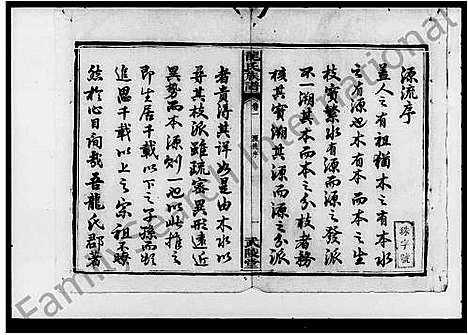 源流序
蓋人之有祖猶木之有本水
之有源也木有本而本之生
枝實繁水有源而源之發派
不一溯其木而本之分枝者務
核其實溯其源而源之分派
龍氏族譜
卷一
源流序
一
武陵堂
者貴得其詳此是由木水以
尋其枝派雖疏密異形遠近
異勢而本源刻一也以此推之
即生居千載以下之子孫而願
追思千載以上之宗祖不瞭
然於心目間哉吾龍氏郡著
珠字號
FamilySearch International